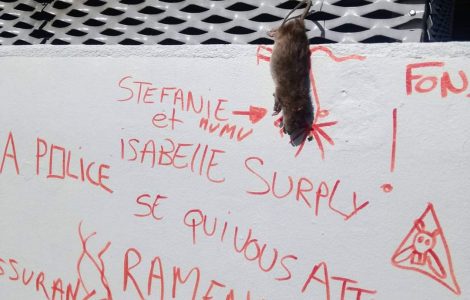 FON
STEFANIE
et MUMU
ISABELLE SURPLY !
A POLICE
SE QUI VOUS ATT
SSURAN
RAMEN